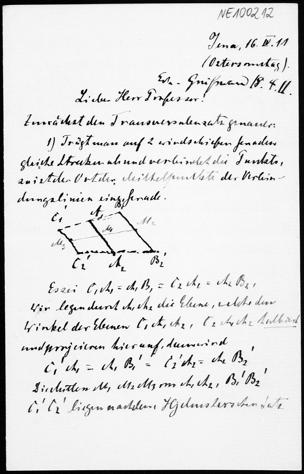 NE100212
Jena, 16. IV. 11
(Ostersonntag).
18. 4. 11.
Lieber Herr Professor!
Zunächst den Transversalensatz genauer:
1) Trägt man auf 2 windschiefen Geraden
gleiche Strecken ab und verbindet die Punkte,
so ist der Ort der Mittelpunkte der Verbin-
dungslinien eine Gerade.
C₁ A₁ B₁
M₂ M₁ M₃
C₂ A₂ B₂
Es sei C₁A₁ = A₁B₁ = C₂A₂ = A₂B₂,
wir legen durch A₁A₂ die Ebene, welche den
Winkel der Ebenen C₁A₁A₂, C₂A₁A₂ halbiert
und projicieren hierauf, dann wird
C₁'A₁ = A₁B₁' = C₂'A₂ = A₂B₂'
Die Mitten M₁M₂M₃ von A₁A₂, B₁'B₂'
C₁'C₂' liegen nach dem Hjelmslevschen Satz